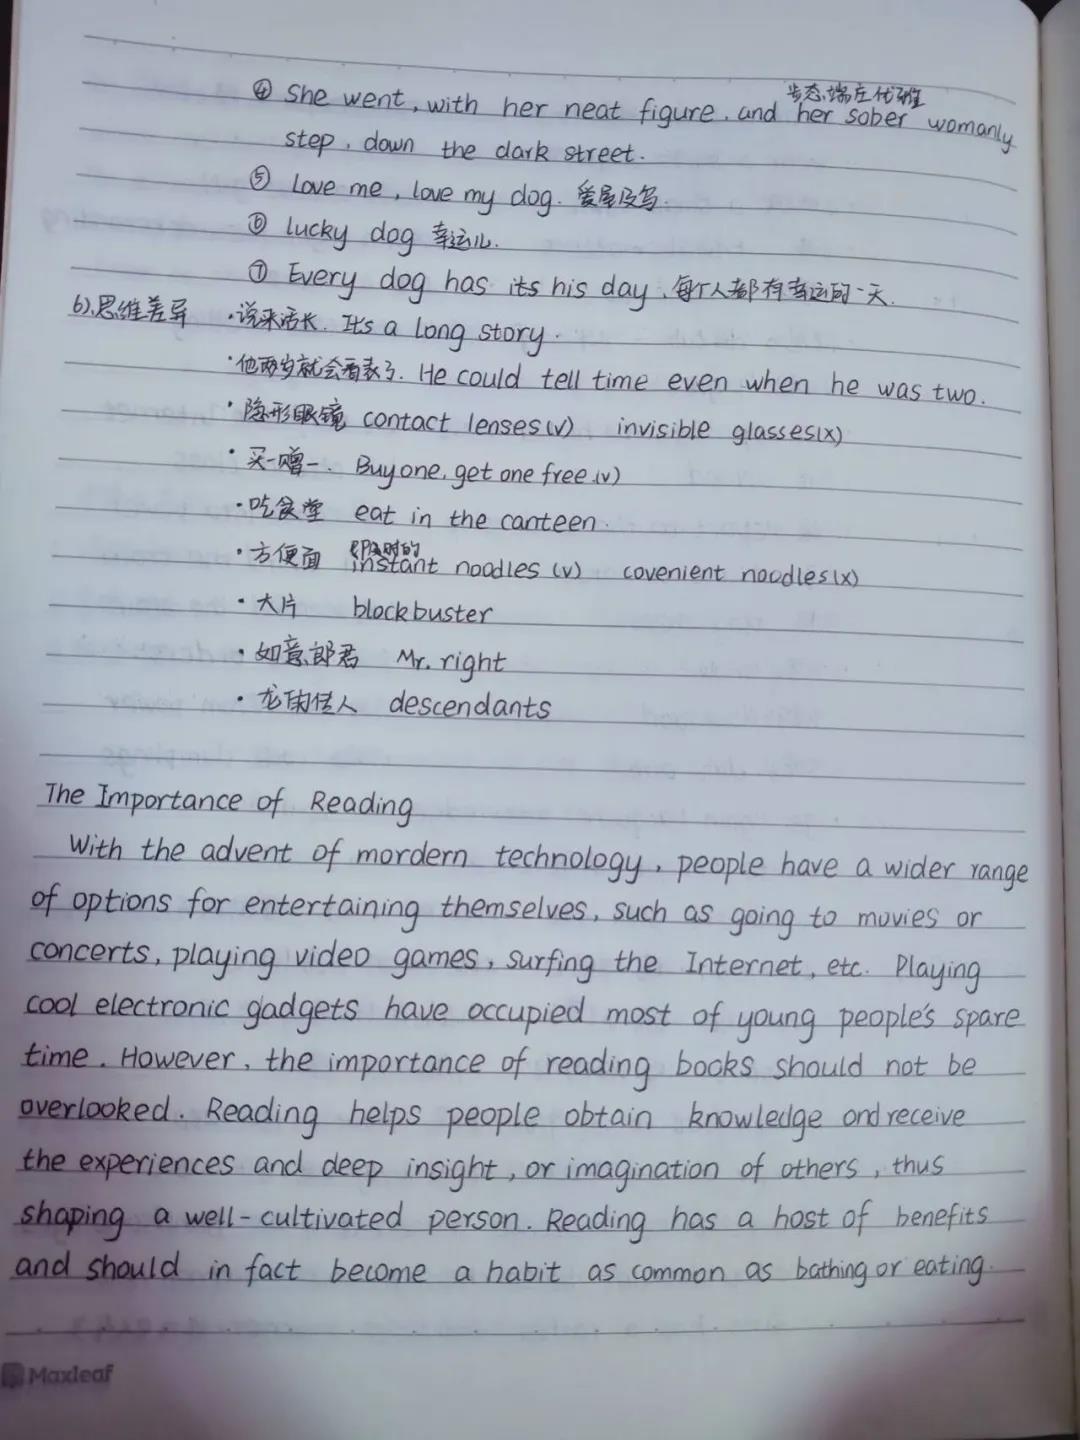 步态端庄优雅
④ She went, with her neat figure, and her sober womanly
step, down the dark street.
⑤ Love me, love my dog. 爱屋及乌.
⑥ lucky dog 幸运儿.
⑦ Every dog has its his day. 每个人都有幸运的一天.
b).思维差异 ·说来话长. It's a long story.
·他两岁就会看表了. He could tell time even when he was two.
·隐形眼镜 contact lenses(v) invisible glasses(x)
·买一赠一. Buy one, get one free.(v)
·吃食堂 eat in the canteen.
即时的
·方便面 instant noodles (v) covenient noodles(x)
·大片 blockbuster
·如意郎君 Mr. right
·龙的传人 descendants
The Importance of Reading
With the advent of mordern technology, people have a wider range
of options for entertaining themselves, such as going to movies or
concerts, playing video games, surfing the Internet, etc. Playing
cool electronic gadgets have occupied most of young people's spare
time. However, the importance of reading books should not be
overlooked. Reading helps people obtain knowledge and receive
the experiences and deep insight, or imagination of others, thus
shaping a well-cultivated person. Reading has a host of benefits
and should in fact become a habit as common as bathing or eating.
Maxleaf